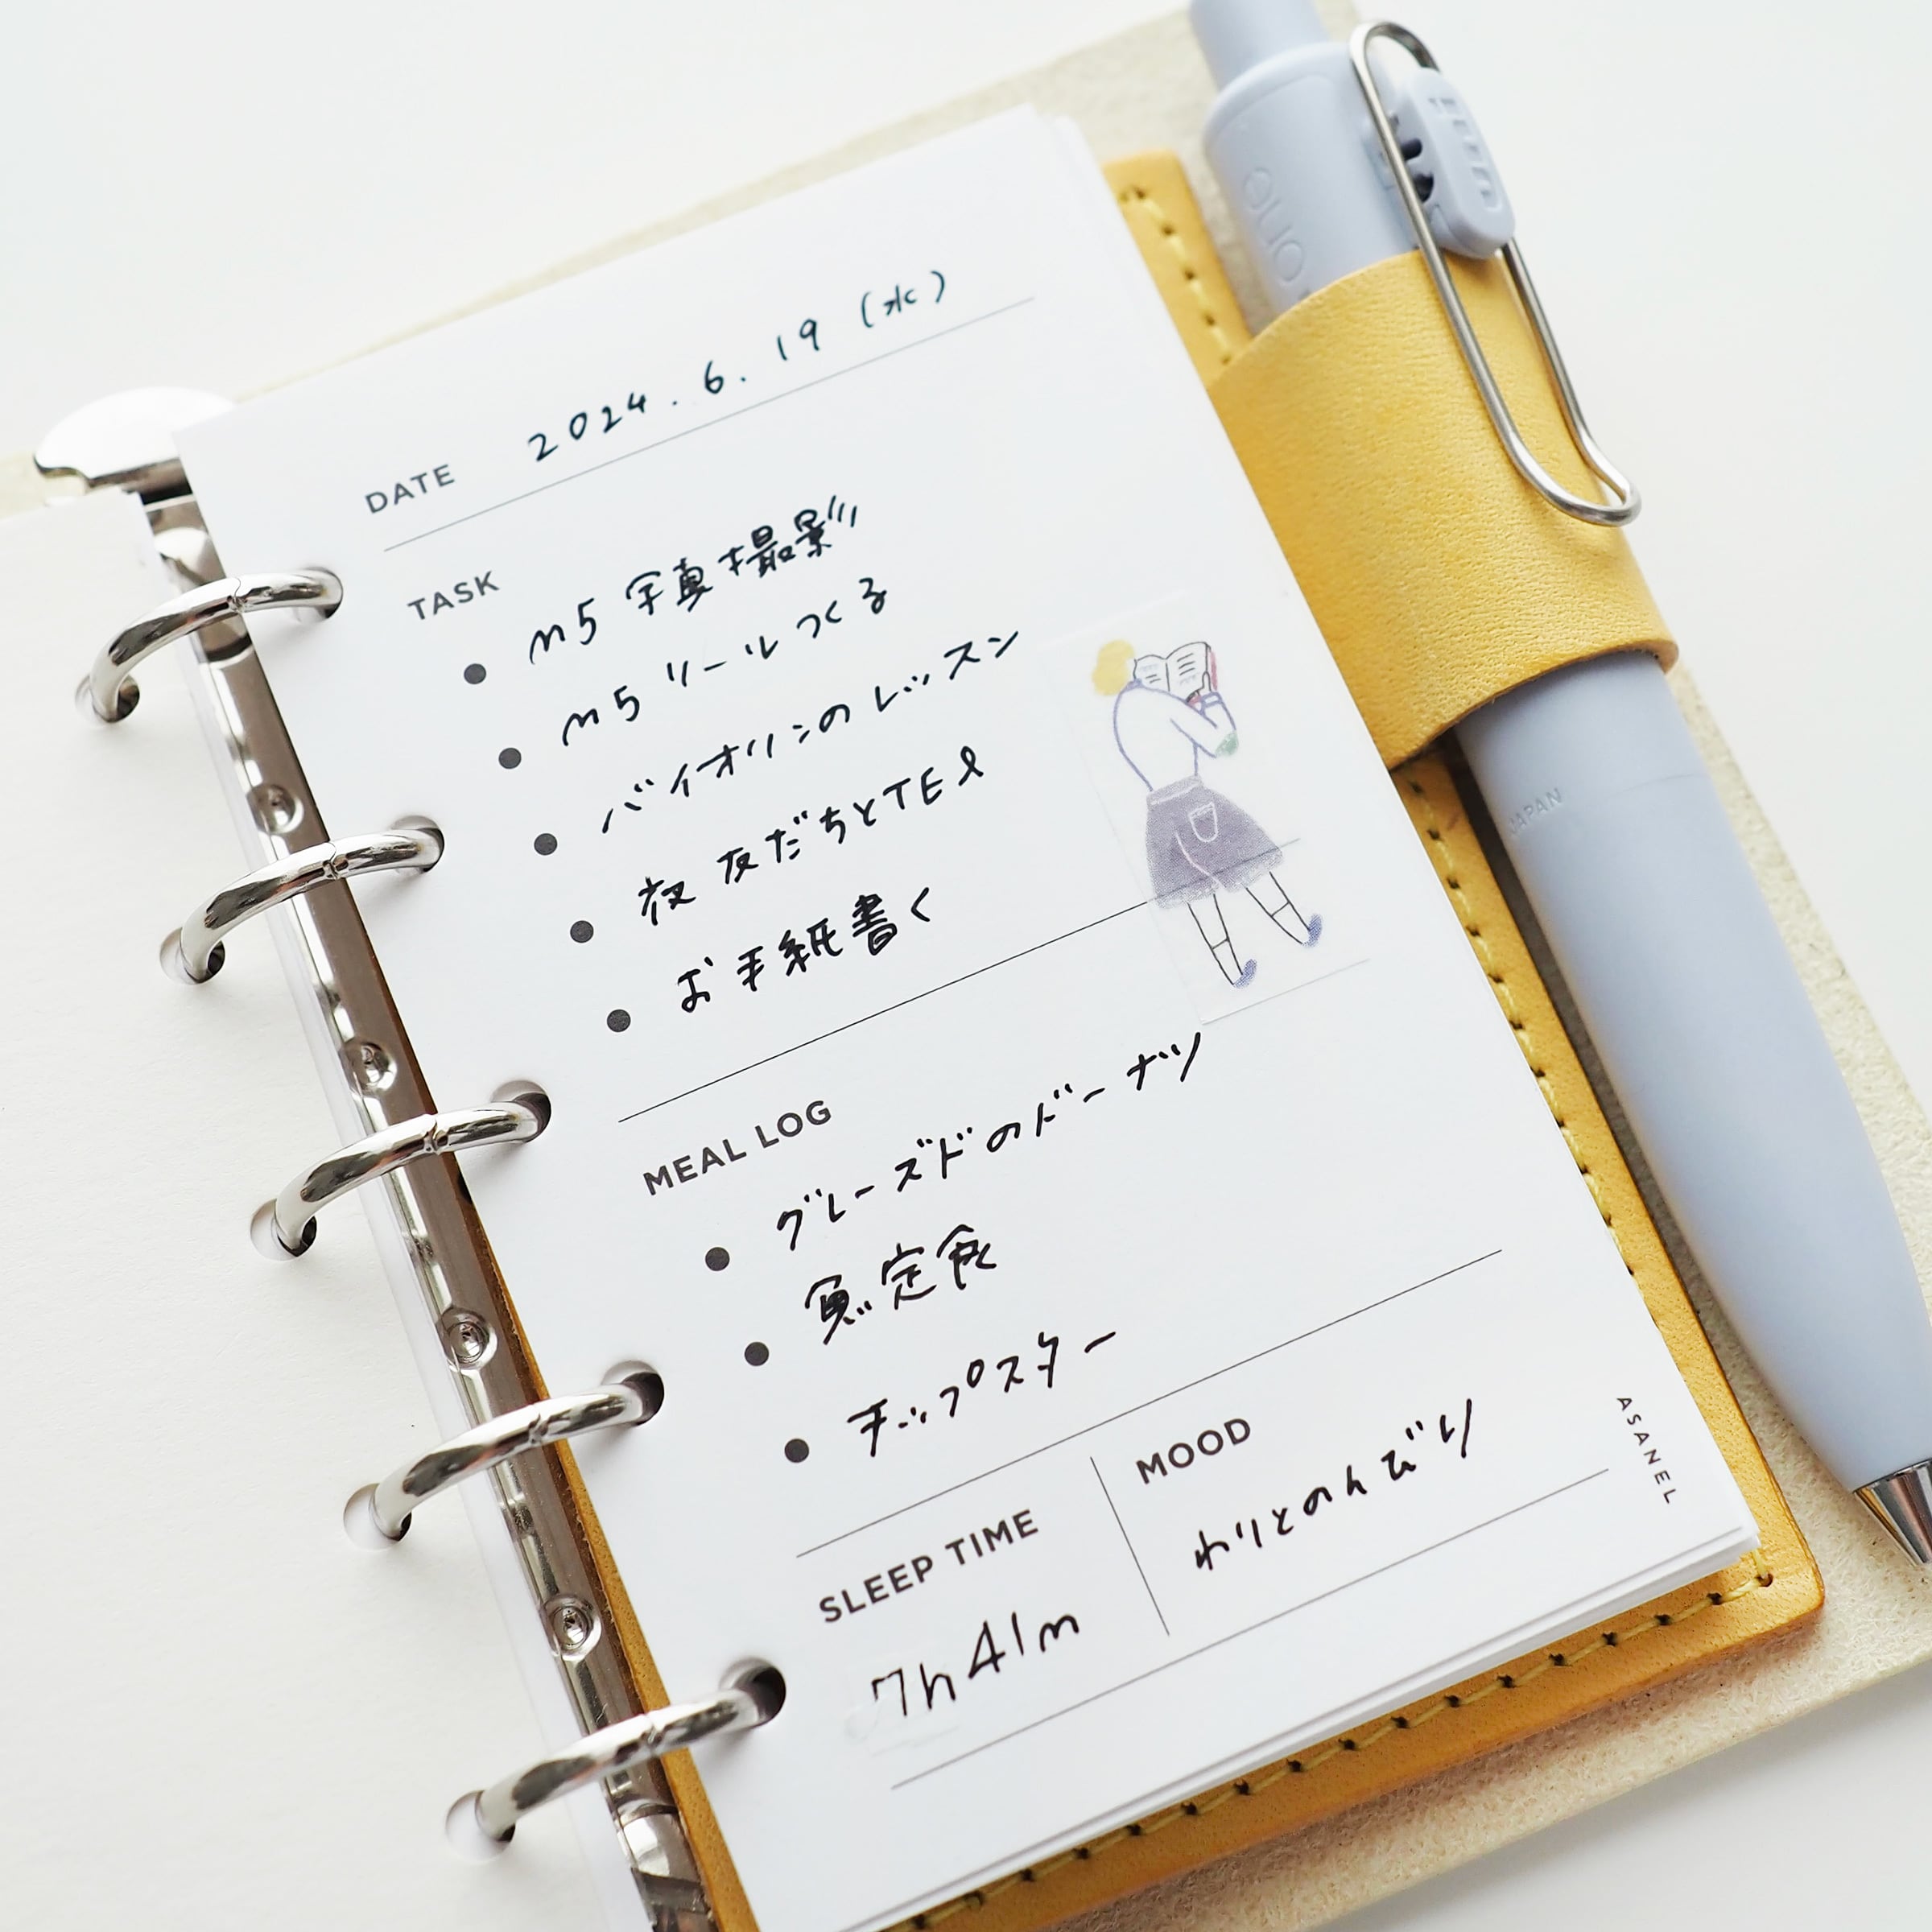 DATE 2024.6.19(水)
TASK
● m5 写真撮影
● m5 リールつくる
● バイオリンのレッスン
● 夜 友だちとTEL
● お手紙書く
MEAL LOG
● グレーズドのドーナツ
● 魚定食
● チップスター
SLEEP TIME
7h41m
MOOD
わりとのんびり
ASANEL
uni
one
JAPAN